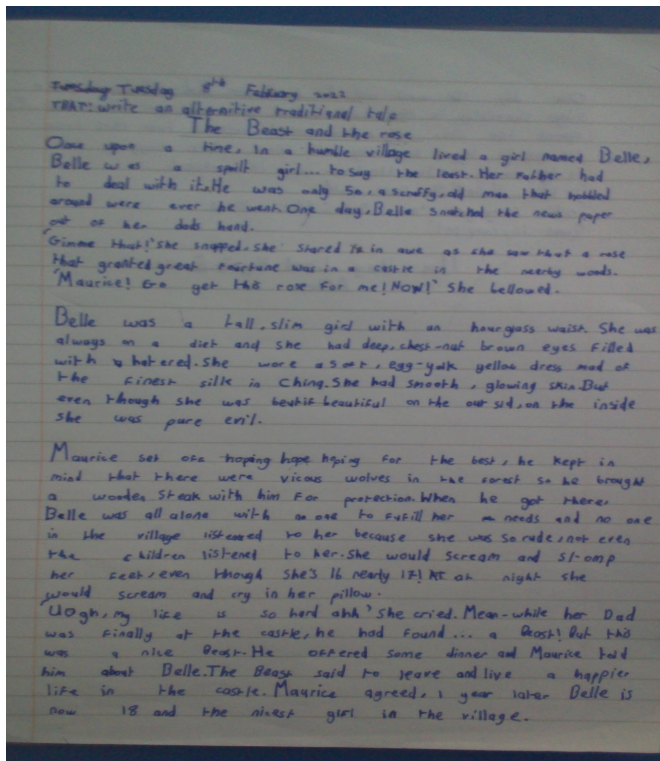 Tuesday Tuesday 8th February 2022
TBAT: write an alternitive traditional tale
The Beast and the rose
Once upon a time, in a humble village lived a girl named Belle,
Belle was a spoilt girl... to say the least. Her father had
to deal with it. He was only 50, a scruffy, old man that hobbled
around were ever he went. One day, Belle snatched the news paper
out of her dads hand.
'Gimme that!' she snapped. She stared in awe as she saw that a rose
that granted great fourtune was in a castle in the nearby woods.
'Maurice! Go get this rose for me! Now!' She bellowed.
Belle was a tall, slim girl with an hourglass waist. She was
always on a diet and she had deep, chest-nut brown eyes filled
with hatered. She wore a soft, egg-yolk yellow dress mad of
the finest silk in China. She had smooth, glowing skin. But
even though she was beutif beautiful on the out sid, on the inside
she was pure evil.
Maurice set off hoping hope hoping for the best, he kept in
mind that there were vicous wolves in the forest so he brought
a wooden steak with him for protection. When he got there,
Belle was all alone with no one to fulfill her needs and no one
in the village listened to her because she was so rude, not even
the children listened to her. She would scream and stomp
her feet, even though she's 16 nearly 17! At night she
would scream and cry in her pillow.
'Uogh, my life is so hard ahh' she cried. Mean-while her Dad
was finally at the castle, he had found... a Beast! But this
was a nice Beast. He offered some dinner and Maurice told
him about Belle. The Beast said to leave and live a happier
life in the castle. Maurice agreed, 1 year later Belle is
now 18 and the nicest girl in the village.